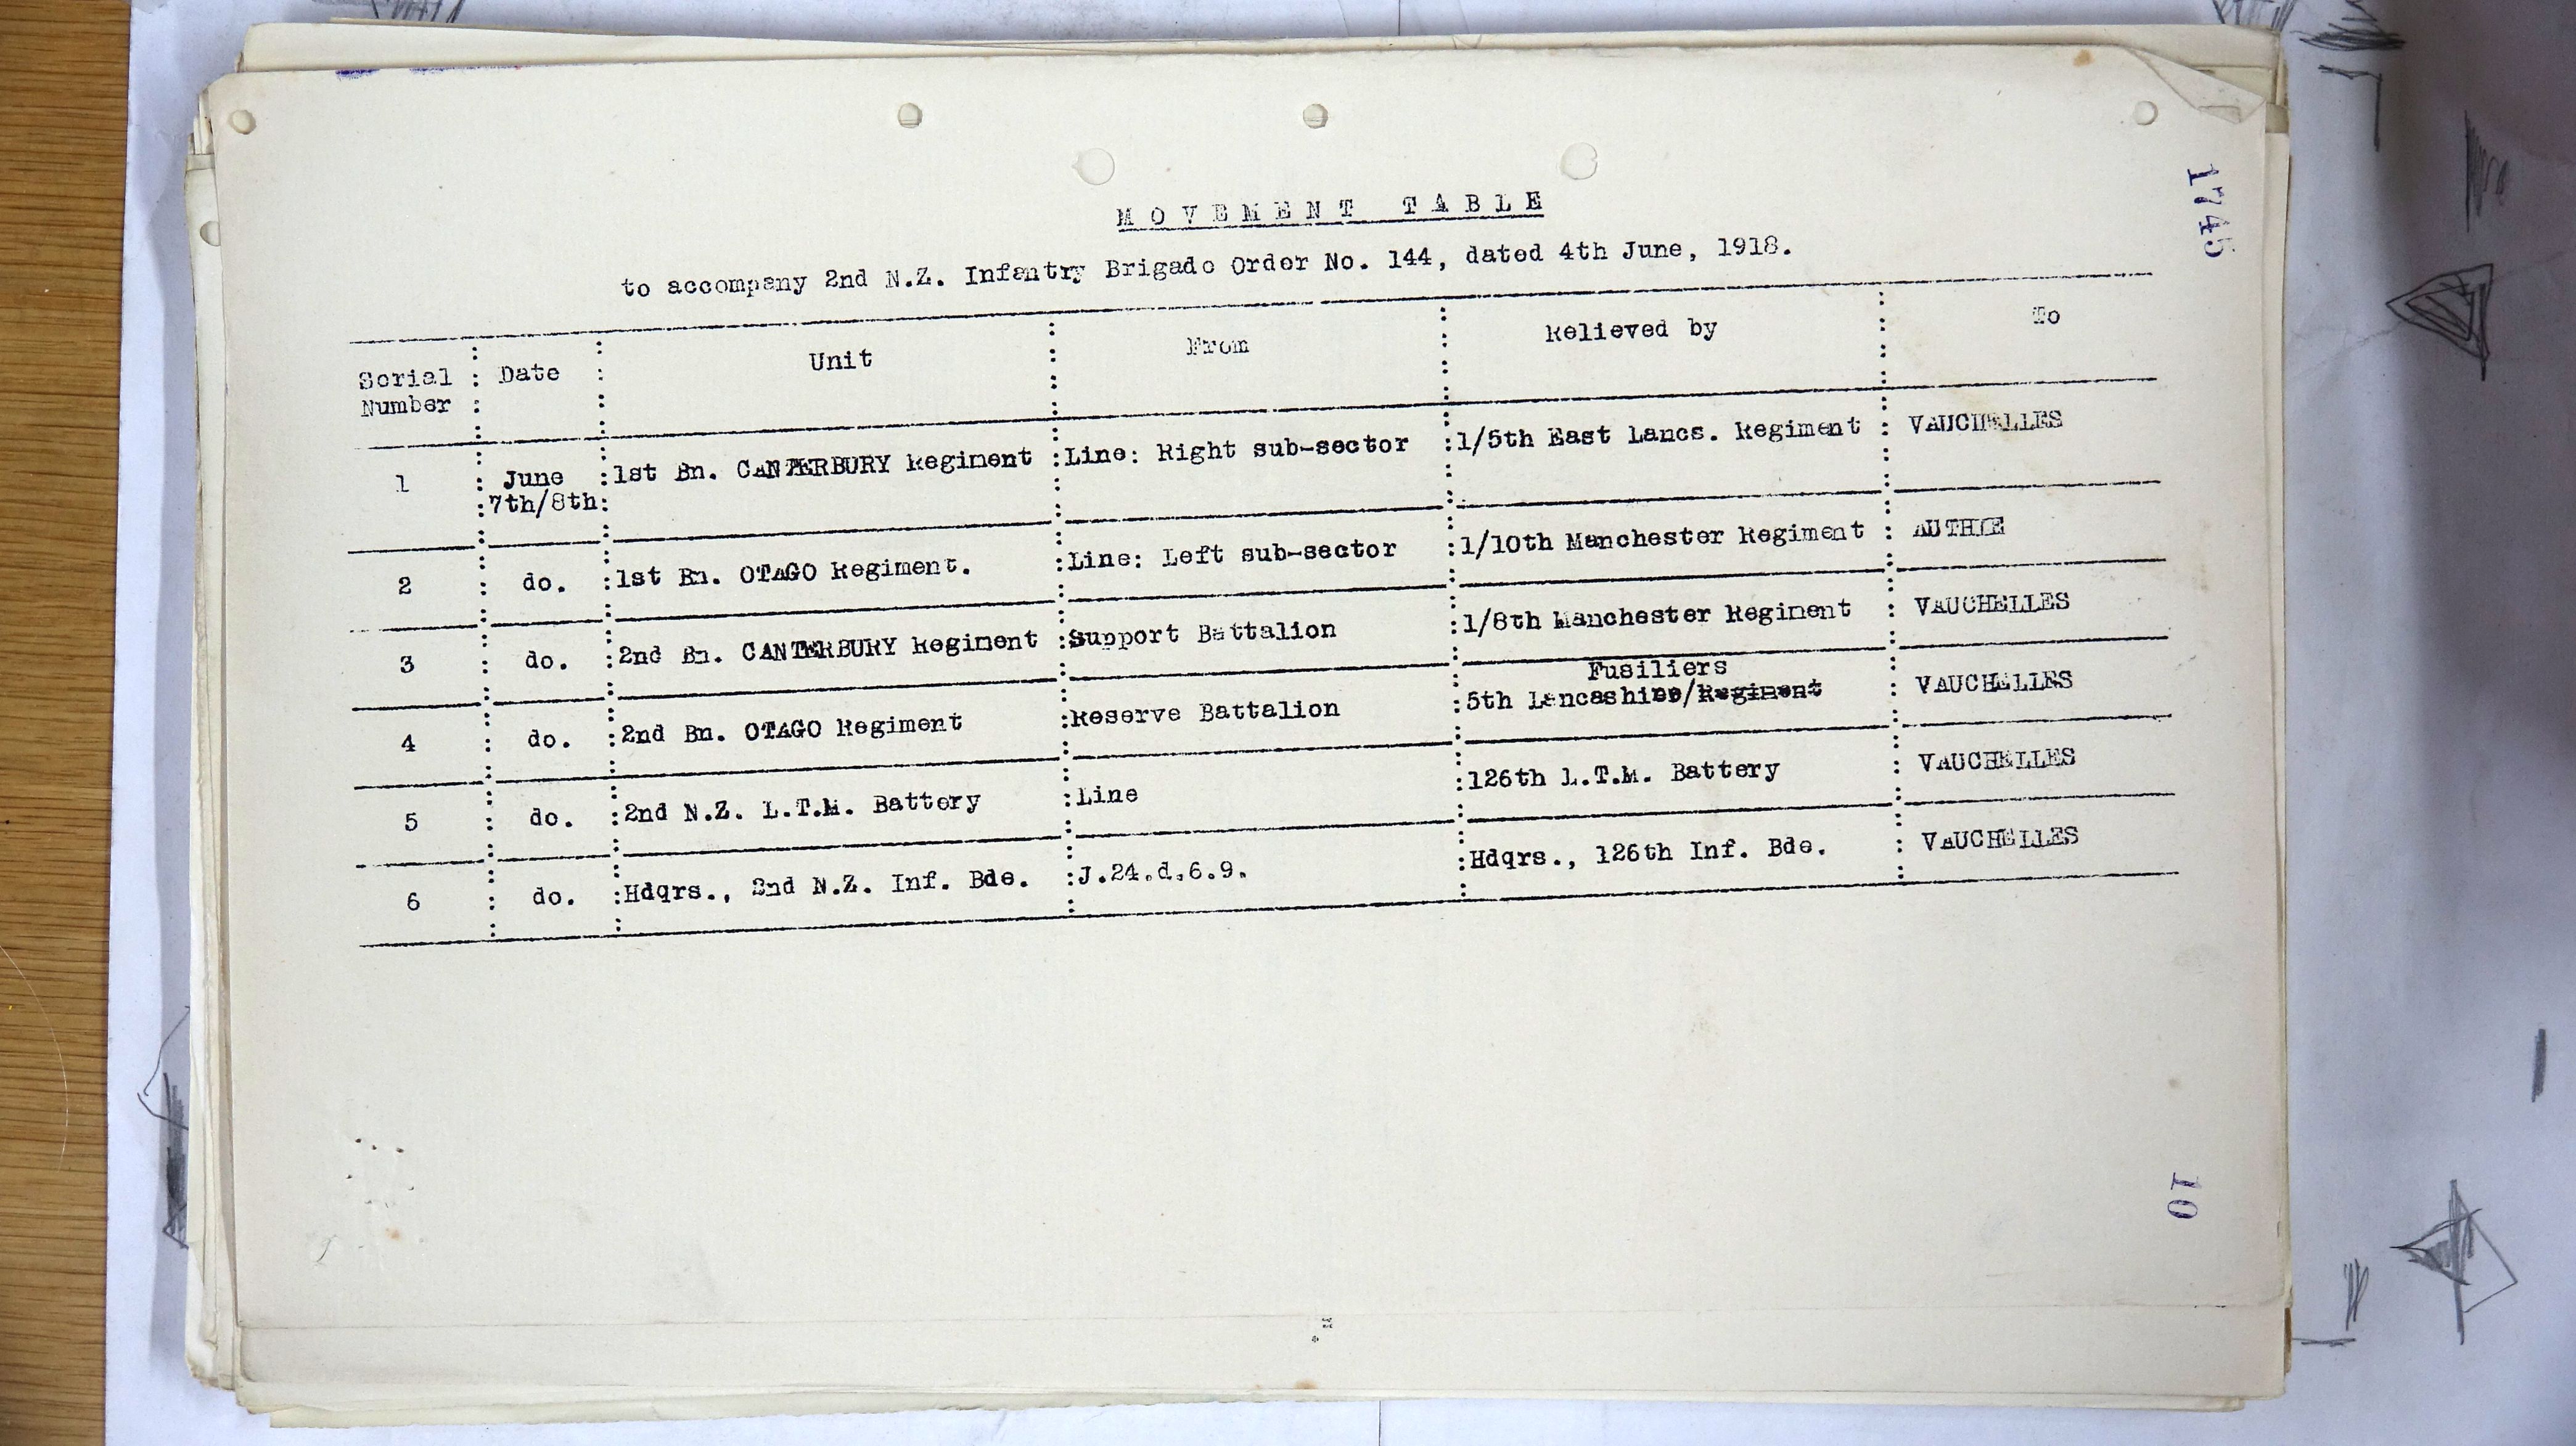 MOVEMENT TABLE
to accompany 2nd N.Z. Infantry Brigade Order No. 144, dated 4th June, 1918.
Serial Number : Date : Unit : From : Relieved by : To
1 : June 7th/8th : 1st Bn. CANTERBURY Regiment : Line: Right sub-sector : 1/5th East Lancs. Regiment : VAUCHELLES
2 : do. : 1st Bn. OTAGO Regiment. : Line: Left sub-sector : 1/10th Manchester Regiment : AUTHIE
3 : do. : 2nd Bn. CANTERBURY Regiment : Support Battalion : 1/8th Manchester Regiment : VAUCHELLES
Fusiliers
4 : do. : 2nd Bn. OTAGO Regiment : Reserve Battalion : 5th Lancashire/Regiment : VAUCHELLES
5 : do. : 2nd N.Z. L.T.M. Battery : Line : 126th L.T.M. Battery : VAUCHELLES
6 : do. : Hdqrs., 2nd N.Z. Inf. Bde. : J.24.d.6.9. : Hdqrs., 126th Inf. Bde. : VAUCHELLES
1745
10